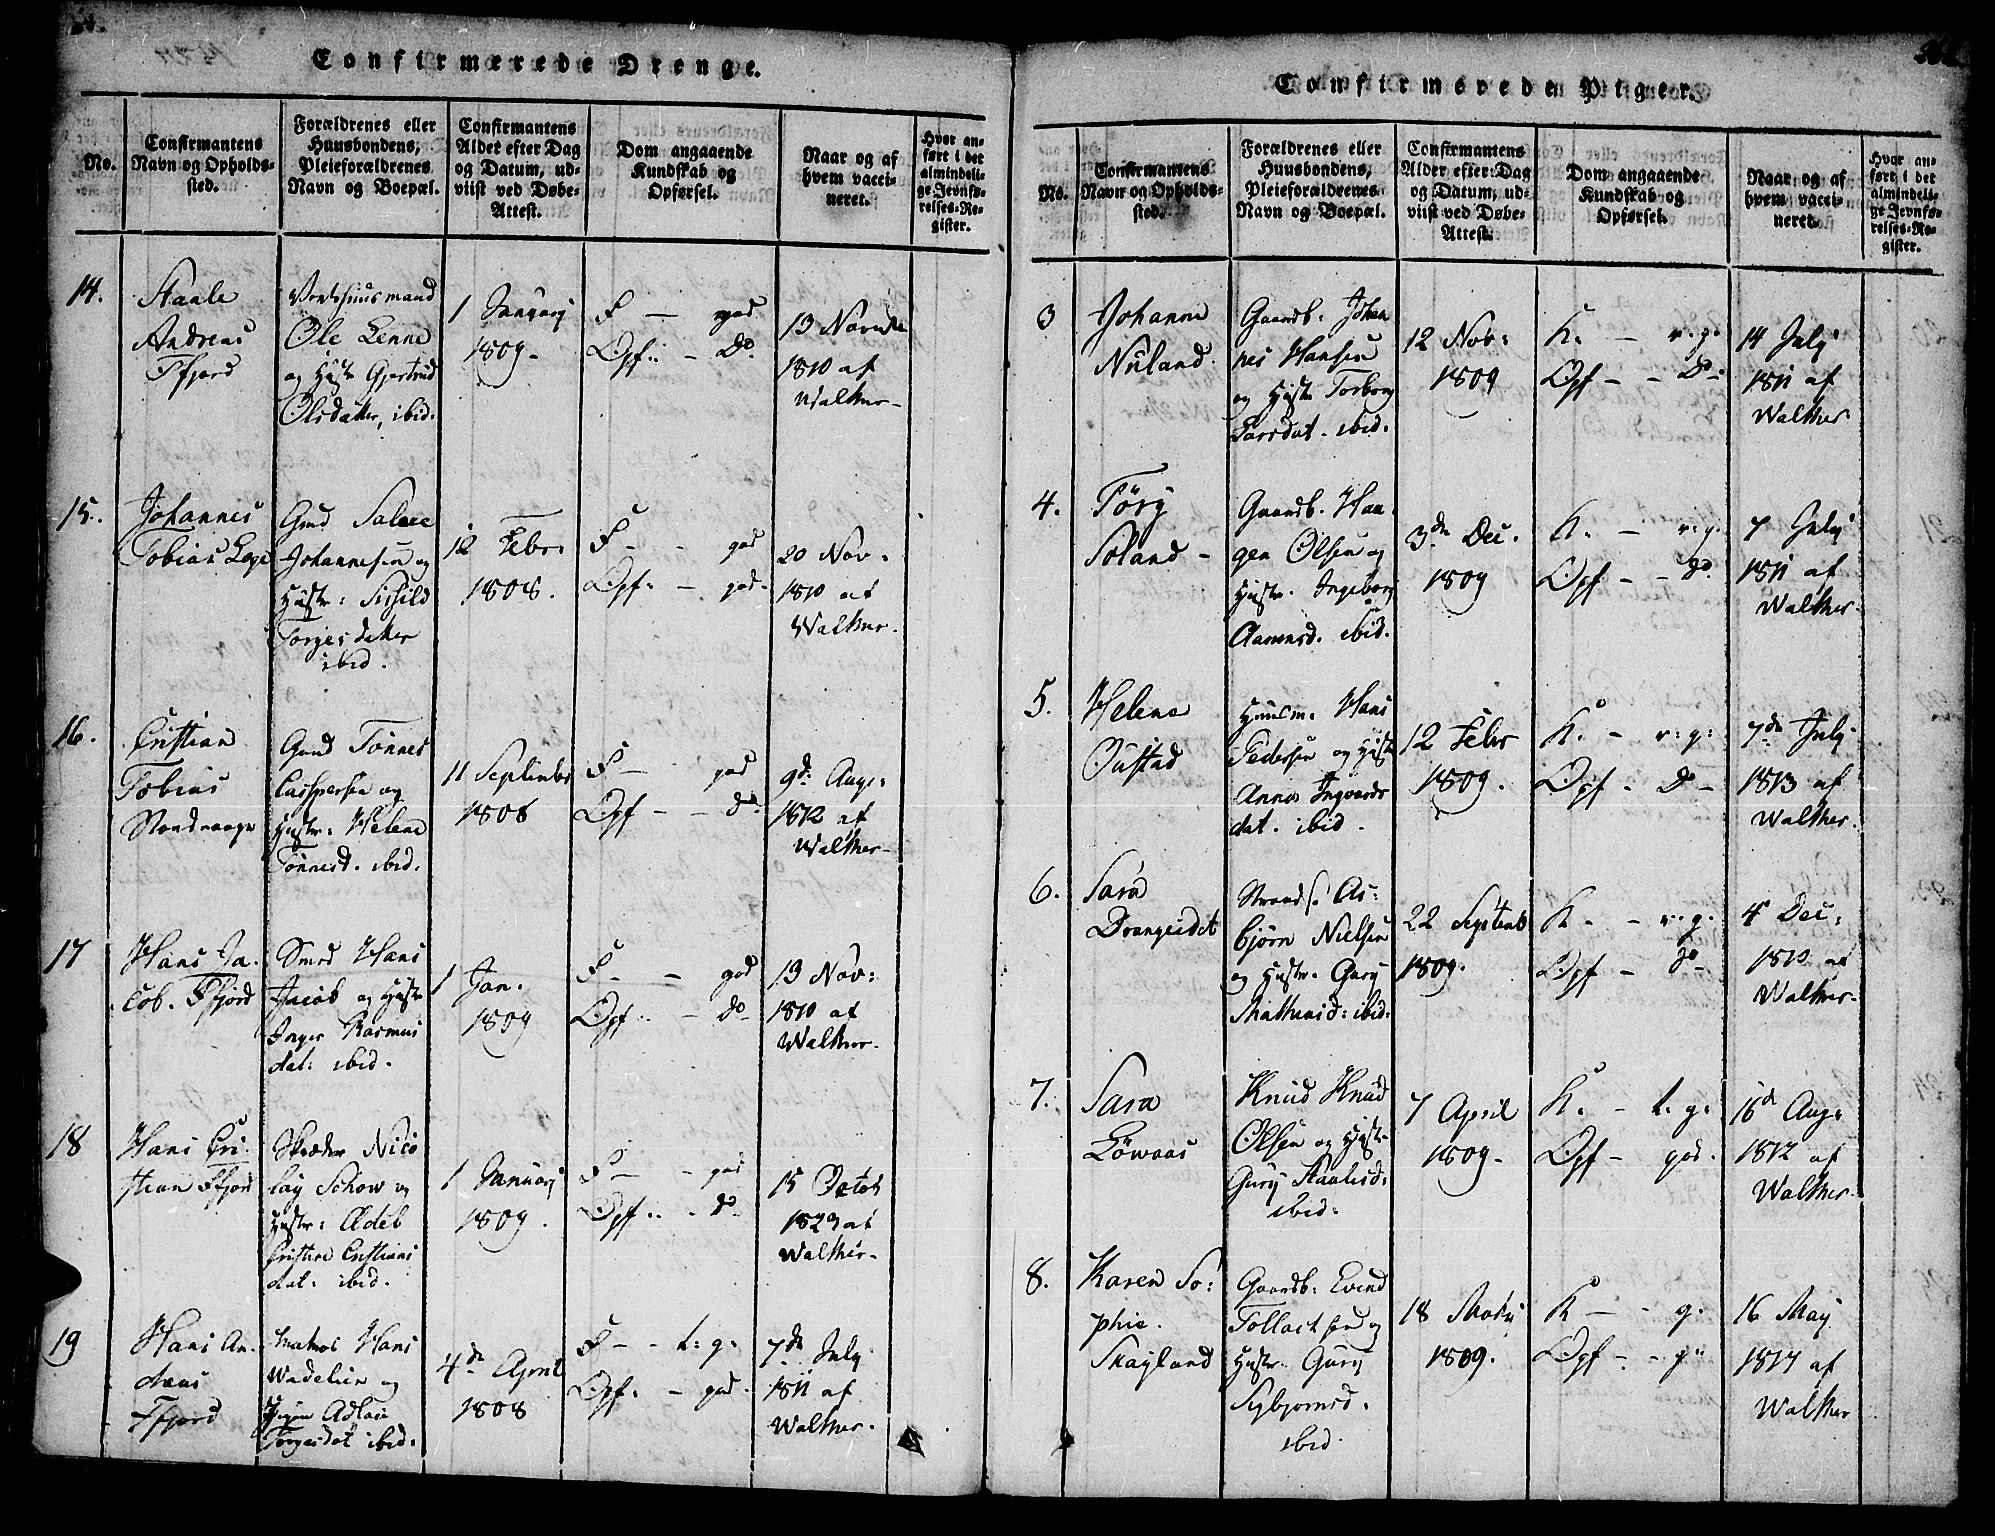 Confirmerede Drenge.
No.
Confirmantens
Navn og Opholds-
sted.
Forældrenes eller
Huusbondens,
Pleieforældrenes
Navn og Boepæl.
Confirmantens
Alder efter Dag
og Datum, ud-
viist ved Døbe-
Attest.
Dom angaaende
Kundskab og
Opførsel.
Naar og af
hvem vacci-
neret.
Hvor an-
ført i det
almindeli-
ge Jevnfø-
relses-Re-
gister.
14.
Staale
Andreas
Ffjord
Ole Lenne
og Hustr Gjertrud
Olsdatter, ibid:
1 Januarj
1809-
F — god
Opf:. - Do.
13 Novembr
1810 af
Walther-
15.
Johannes
Tobias Lege
Gmd Salve
Johannesen og
Hustr: Sishild
Torgersdatter
ibid.
12 Febr:
1808.
F - - god
Opf: — god-
20 Nov:
1810 af
Walther.
16.
Cristian
Tobias
Gmd Tönnes
Caspersen og
Hustr: Helene
Tönnesd. ibid.
11 Septembr
1808
F — god
Opf - - do.
9d. Aug:
1812 af
Walther-
17
Hans Ja-
cob. Ffjord
Smed Hans
Jacob og Hustr
Inger Rasmus
dat: ibid.
1 Jan.
1809
F - — god
Opf:. - do-
13 Nov:
1810 af
Walther-
18
Hans Cri-
stian Ffjord
Skræder Nico
lay Schow og
Hustr: Adel
Cristine Cristians
dat: ibid.
1 Januarj
1809.
F — - god
Opf:. - do
15 Octob
1823 af
Walther-
19
Hans An-
dreas
Ffjord
Matros Hans
og
Torgersdat ibid:
4de April
1808
F - - t: g:
Opf: — god.
7de July
1811 af
Walther-
Confirmerede Piger.
No.
Confirmantens
Navn og Opholds-
sted.
Forældrenes eller
Huusbondens,
Pleieforældrenes
Navn og Boepæl.
Confirmantens
Alder efter Dag
og Datum, ud-
viist ved Døbe-
Attest.
Dom angaaende
Kundskab og
Opførsel.
Naar og af
hvem vacci-
neret.
Hvor an-
ført i det
almindeli-
ge Jevnfø-
relses-Re-
gister.
3
Johanne
Nuland.
Gaardb: Johan
nes Hansen
og Hustr Torborg
Larsdat. ibid:
12 Nov:
1809
K. — v: g:
Opf - - Do-
14 July
1811 af
Walther-
4.
Töry
Soland -
Gaardb. Haa-
gen Olsen og
Hustr. Ingeborg
Aamensd. ibid.
3de Dec.
1809
K. — v: g:
Opf - - do.
7 July
1811 af
Walther-
5.
Helene
Oustad
Huusm: Hans
Pedersen og Hustr
Anna Ingvards
dat. ibid.
12 Febr
1809.
K. - v: g:
Opf - Do -
7de July
1813 af
Walther.
6.
Sara
Drangeidet
Strands: As-
björn Nielsen
og Hustr. Gury
Mathiasd: ibid:
22 Septemb
1809.
K. - v: g.
Opf - do-
4 Dec:
1810 af
Walther-
7.
Sara
Löwaas
Knud Knud
Olsen og Hustr-
Gury Staalesd:
ibid:
7 April
1809-
K. - t. g:
Opf - god.
16d Aug:
1812 af
Walther-
8.
Karen So:
phie.
Skayland
Gaardb: Evind
Tollach send og
Hustr. Gury
Sigbjörnsd.
ibid.
18 Martij
1809.
K — - g.
Opf - - g:
16 May
1817 af
Walther